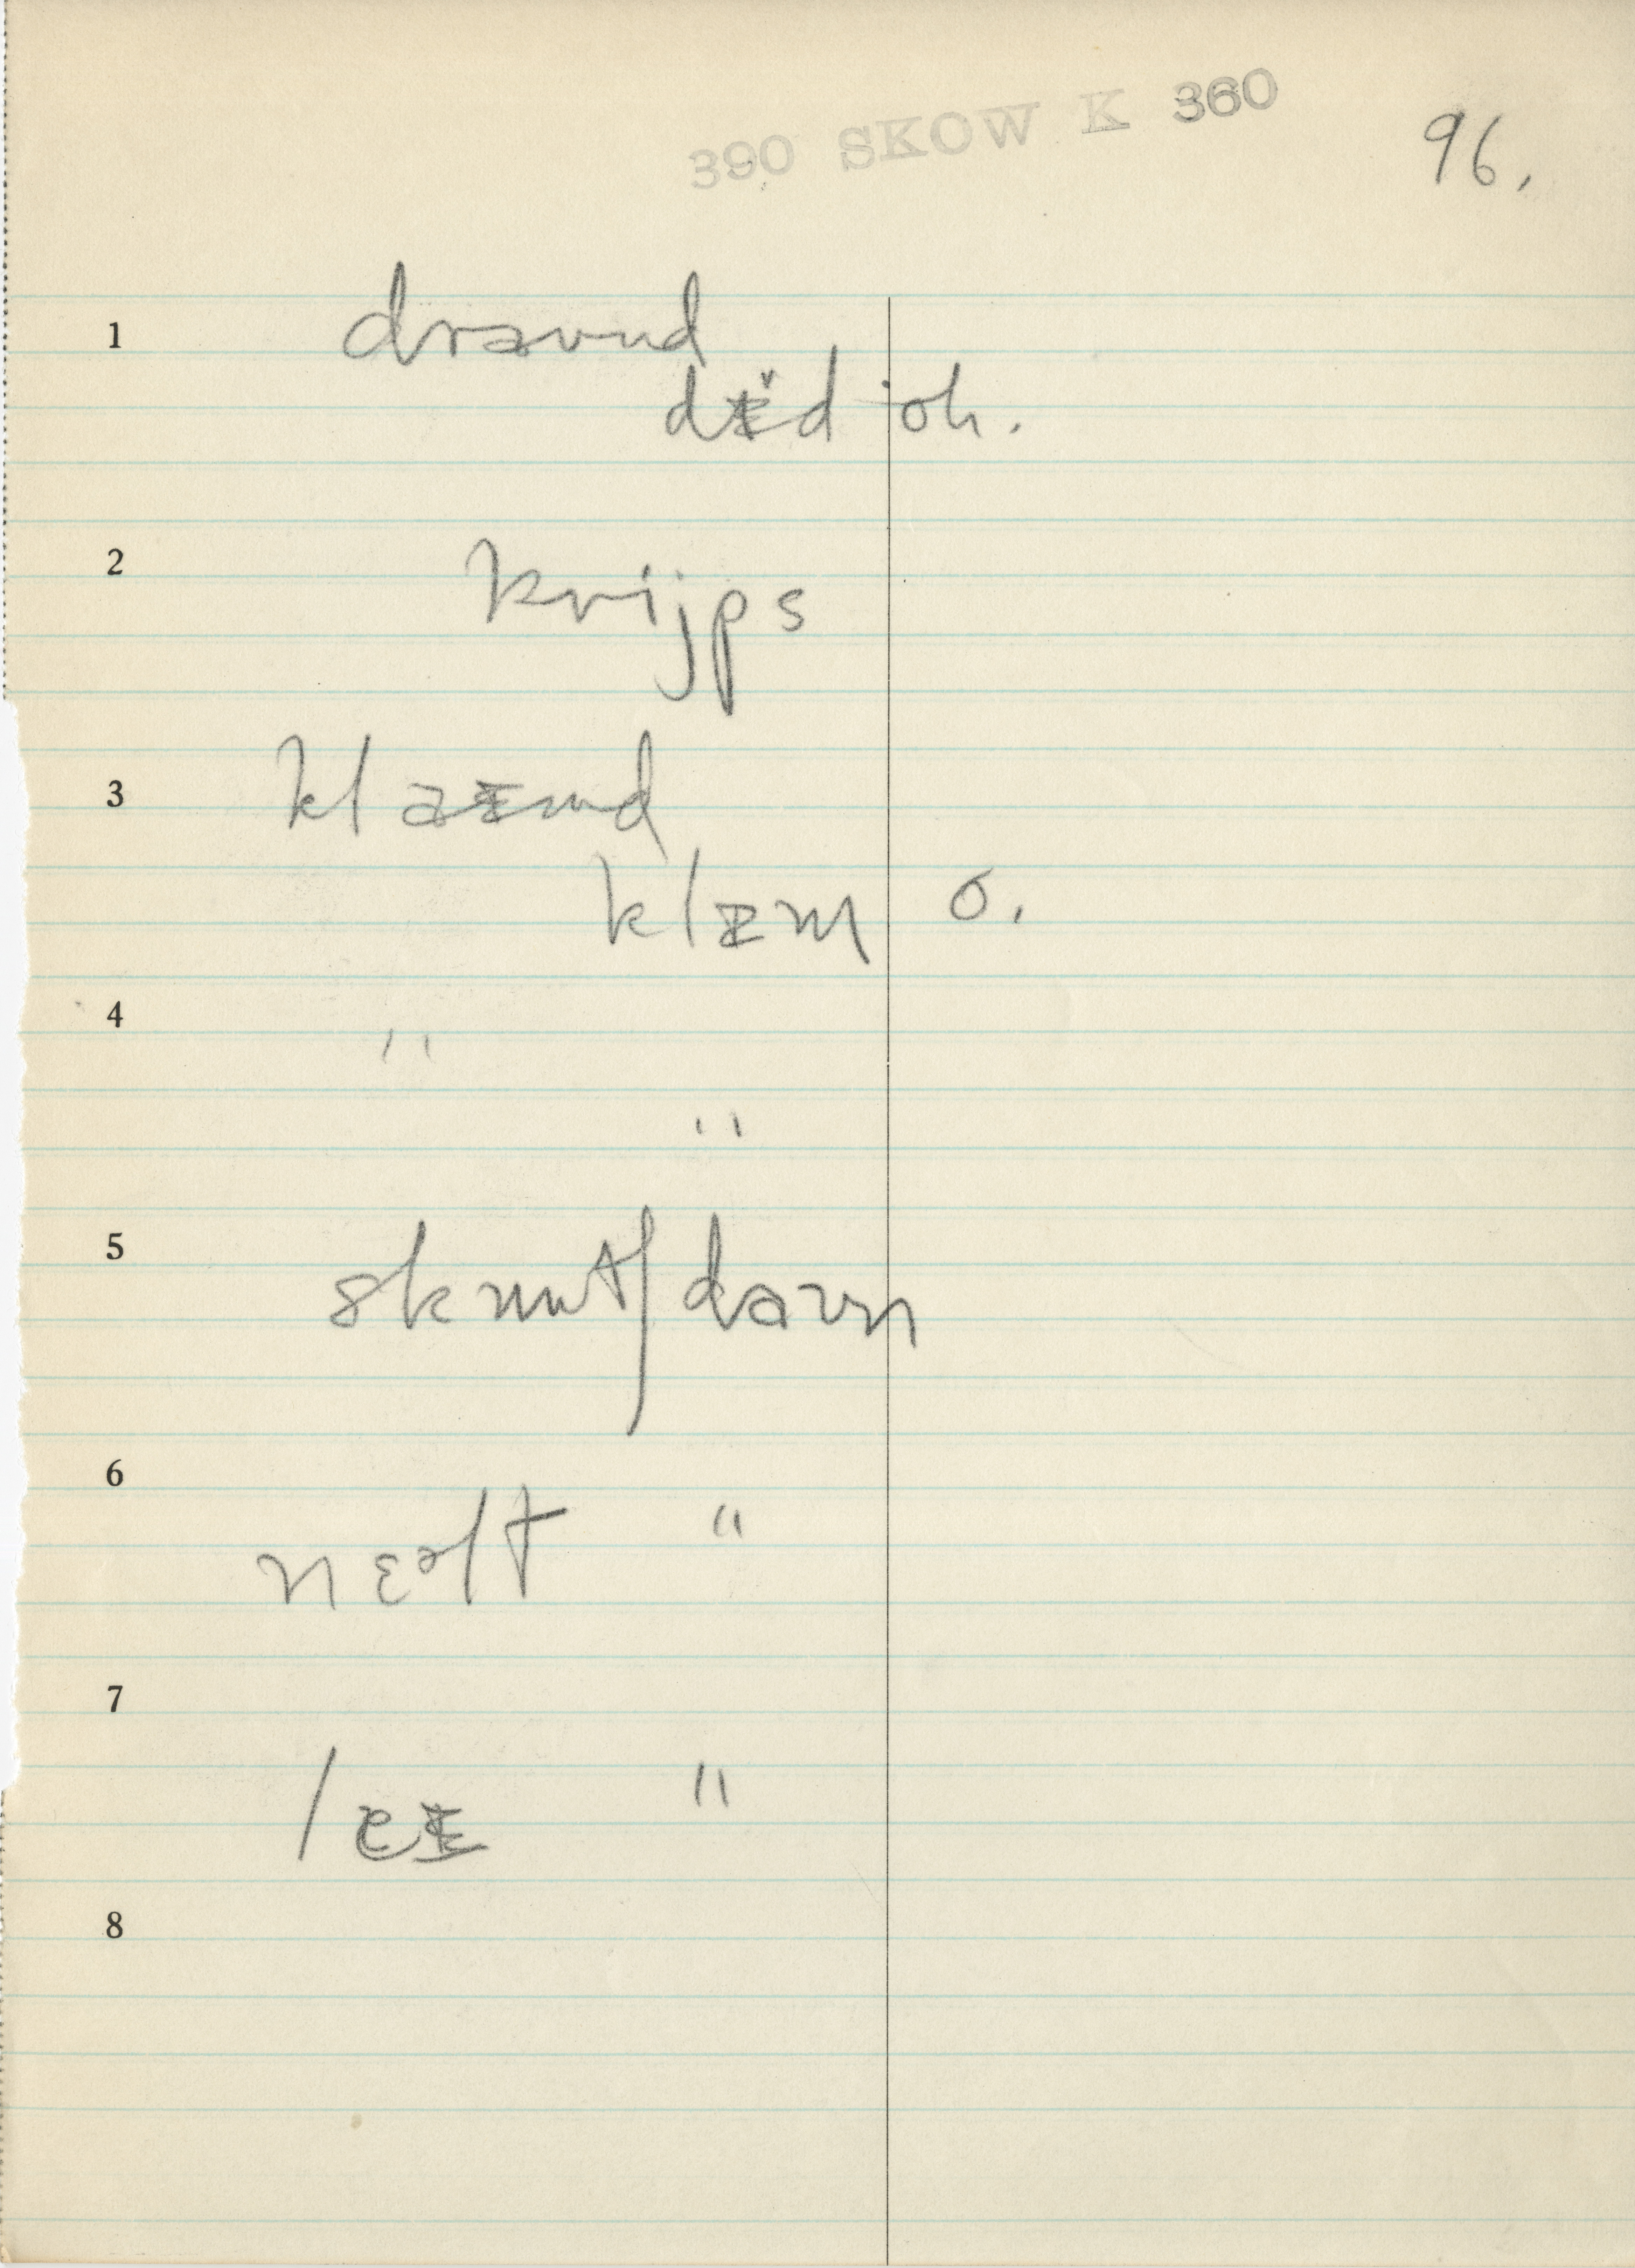 390 SKOW K 360
96.
1 drawnd
dɨ̌d oh.
2 knijps
3 klaɨmd
klɨm o.
4 "
"
5 skuut/dawn
6 nɛəlt "
7 leɨ "
8